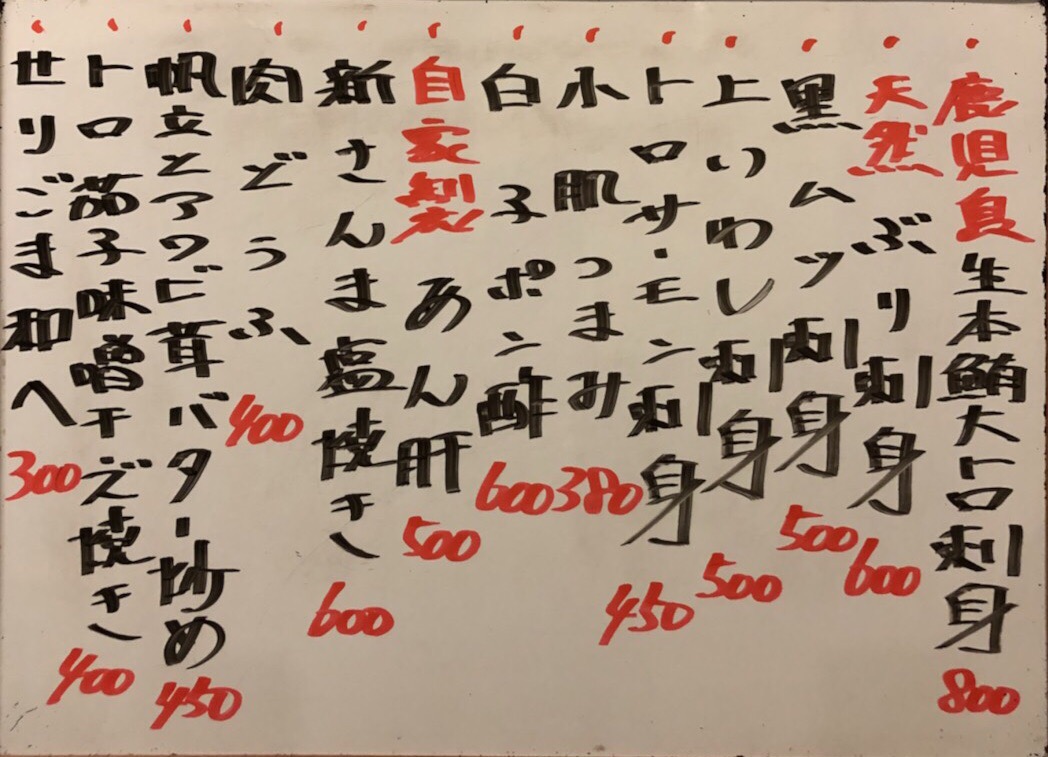 鹿児島生本鮪大トロ刺身 800
天然ぶり刺身 600
黒ムツ刺身 500
上いわし刺身 500
トロサーモン刺身 450
小肌つまみ 380
白子ポン酢 600
自家製あん肝 500
新さんま塩焼き 600
肉どうふ 400
帆立とアワビ茸バター炒め 450
トロ茄子味噌チーズ焼き 400
せりごま和へ 300